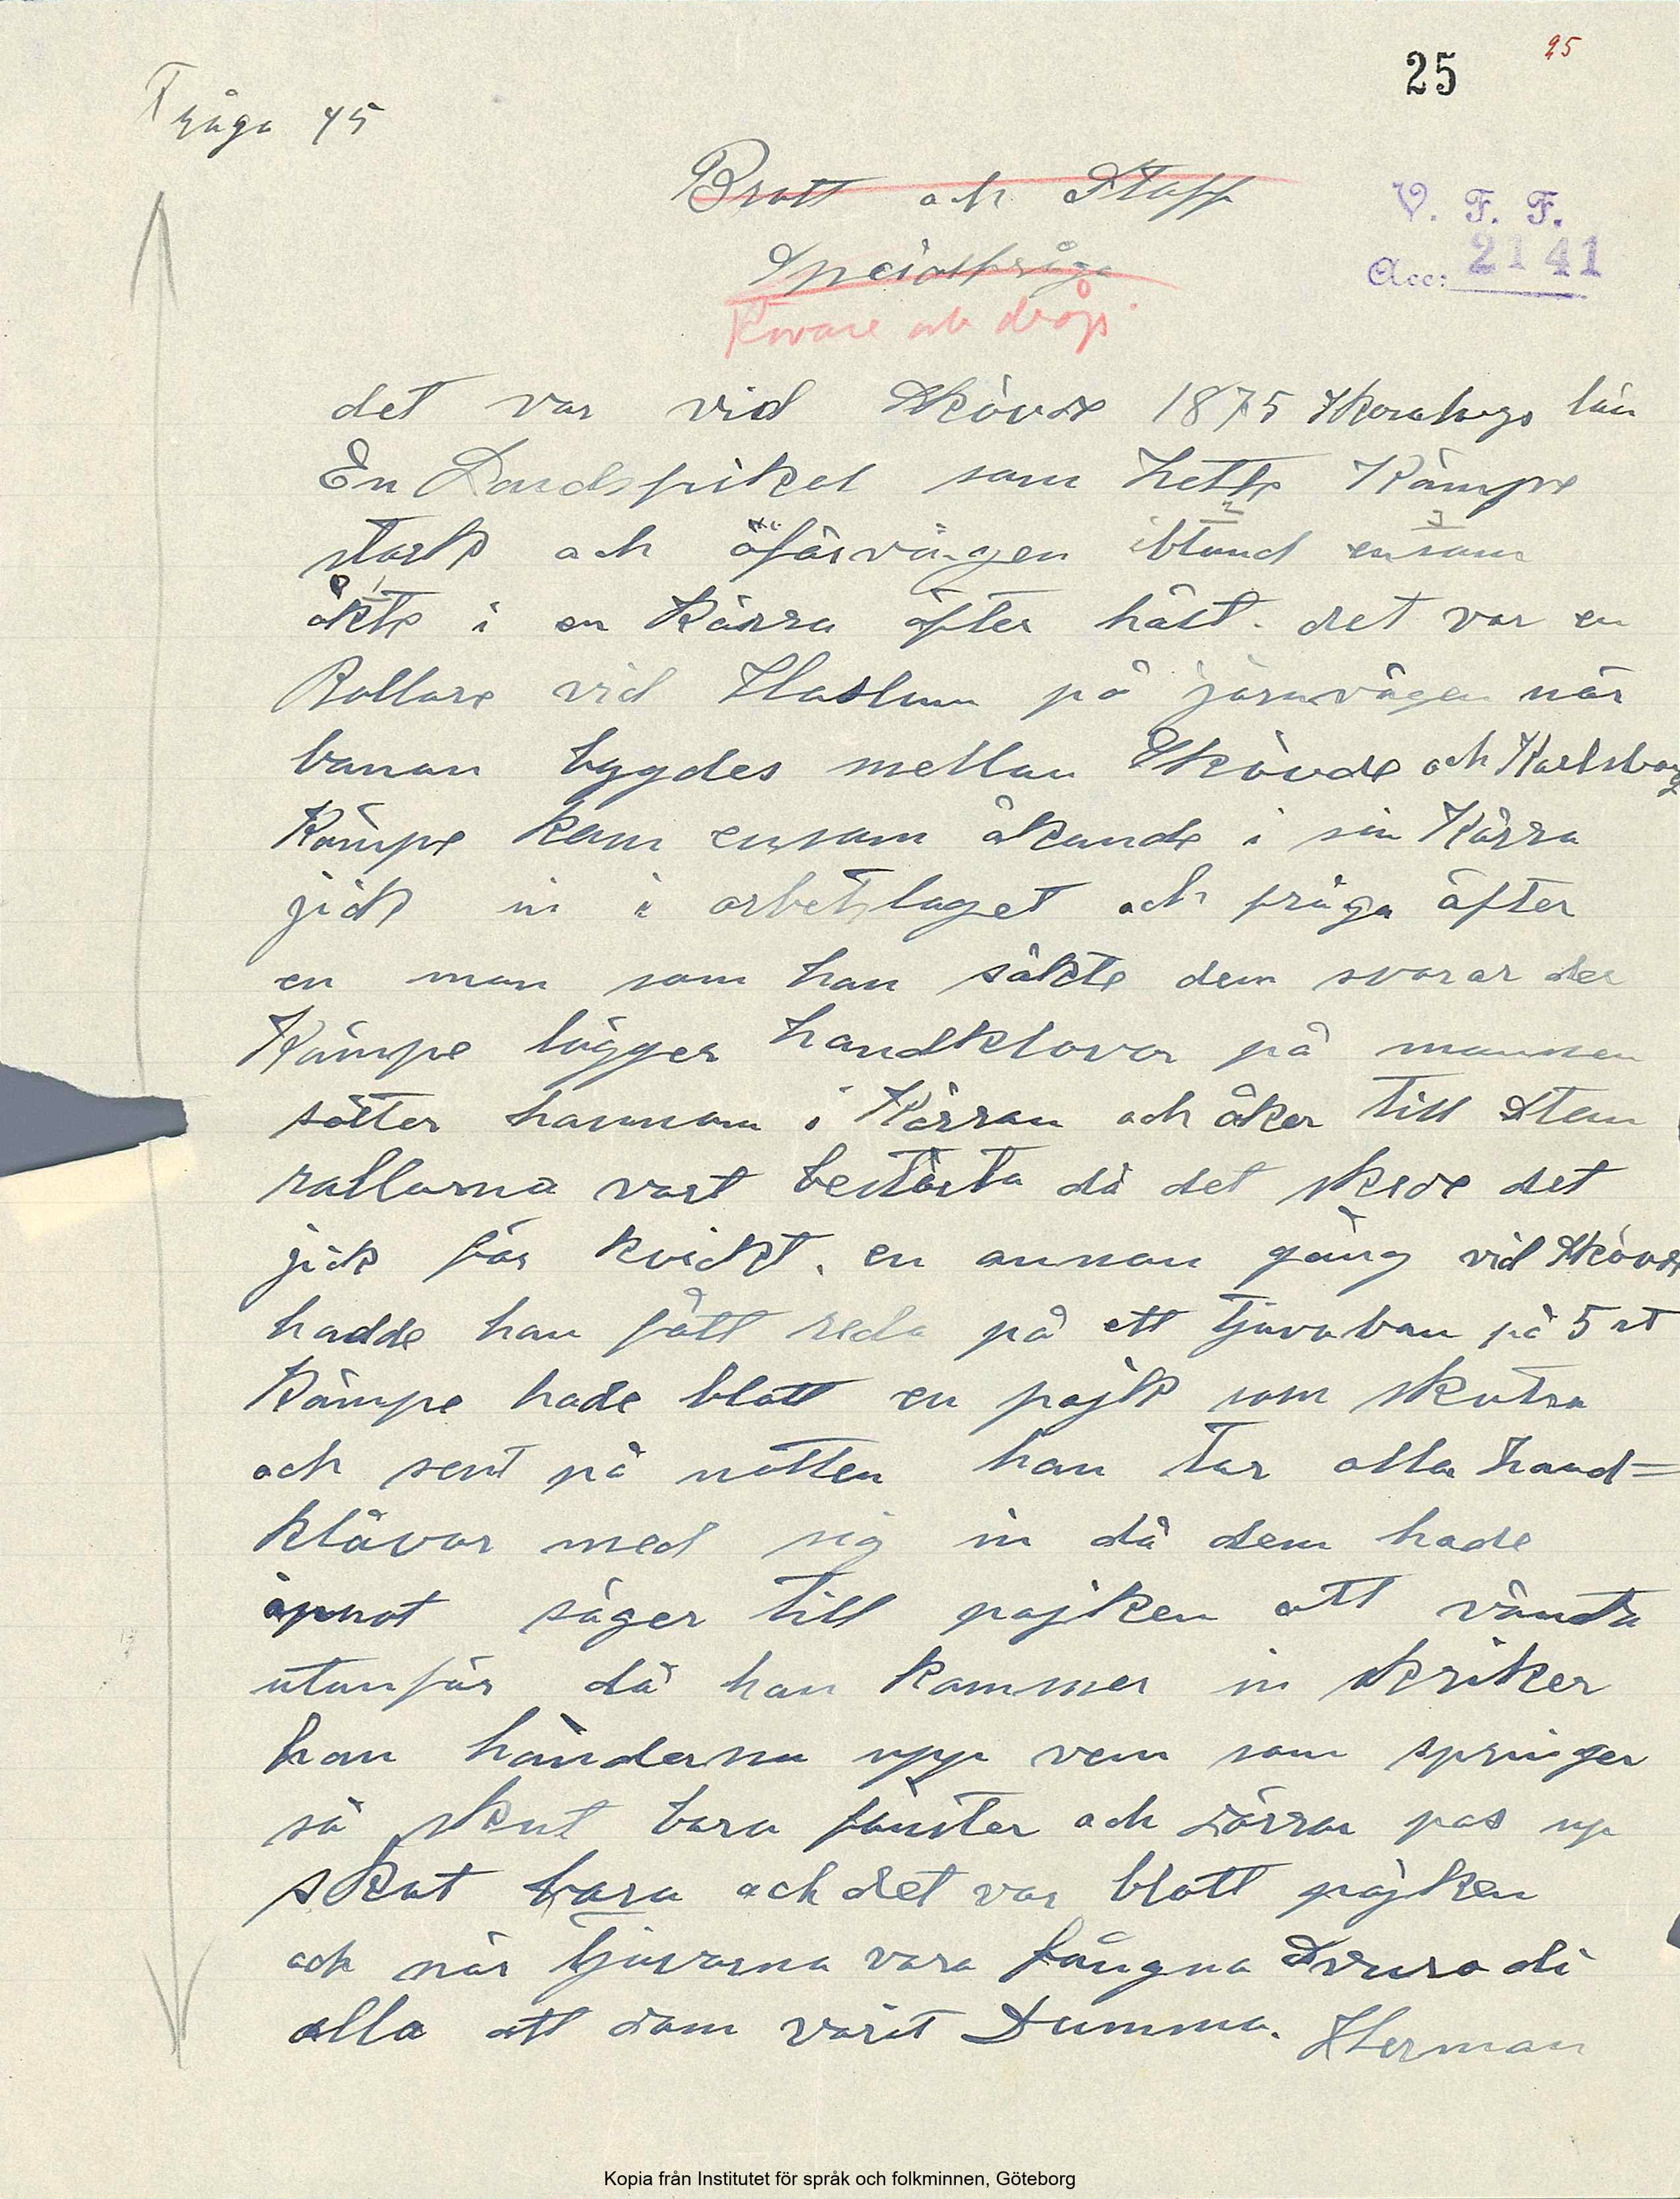 25 25
Fråga 45
Brott och Straff
V. F. F.
Specialfråga
Acc: 2141
Rövare och dråp
det var vid Skövde 1875 Skaraborgs län
En Landsfiskal som hette Kämpe
stark och oförvägen ibland ensam
2 3
1
åkte i en Kärra äfter häst. det var en
Rallare vid Haslum på järnvägen när
banan bygdes mellan Skövde och Karlsborg
Kämpe kom ensam åkande i sin Kärra
jick in i arbetslaget och fråga äfter
en man som han sökte dem svarar der
Kämpe lägger handklovar på mannen
sätter hannom i Kärran och åker till Sten
rallarna vart bestörta då det skede det
jick för kvickt. en annan gång vid Skövde
hadde han fått reda på ett tjuvaban på 5 st
Kämpe hade blott en pojk som skutsa
och sent på natten han tar alla hand=
klåvor med sig in då dem hade
öpnat säger till pojken att vänta
utanför då han kommer in skriker
han händerna upp vem som springer
så skut bara fönster och dörrar pas up
skut bara och det var blott pojken
och när tjuvarna vara fångna svuro di
alla att dom varit Dumma. Herman
Kopia från Institutet för språk och folkminnen, Göteborg